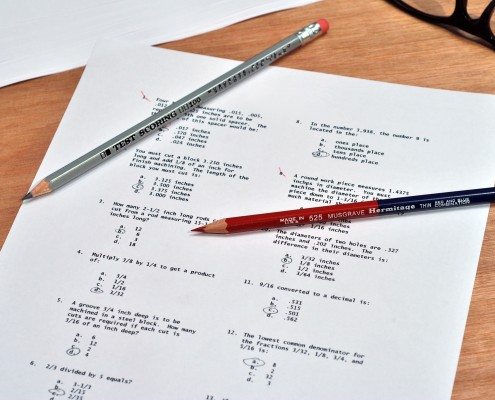 TEST SCORING 100
Four
measuring .015, .005,
one solid spacer. The
of this spacer would be:
.017 inches
.320 inches
.047 inches
.022 inches
You must cut a block 3.250 inches
long and add 1/8 of an inch for
finish machining. The length of the
block you must cut is:
a. 3.125 inches
3.300 inches
3.375 inches
4.000 inches
3. How many 2-1/2 inch long rods
cut from a rod measuring 15
inches long?
a. 12
b. 8
c.
d. 14
4. Multiply 3/8 by 1/4 to get a product
of:
a. 3/4
b. 1/2
c. 1/16
d. 3/32
5. A groove 3/4 inch deep is to be
machined in a steel block. How many
cuts are required if each cut is
3/16 of an inch deep?
a. 6
b. 12
c. 2
d. 4
6. 2/3 divided by 5 equals?
a. 1-1/3
b. 2/15
8. In the number 1,938, the number 8 is
located in the:
ones place
b. thousands place
c. tens place
d. hundreds place
A round work piece measures 1.4375
inches in diameter.
the machine
piece down to 1-3/16
MADE IN 525 MUSGRAVE Hermitage THIN RED AND BLUE
The diameters of two holes are .327
inches and .202 inches. The
difference in their diameters is:
a. 3/32 inches
b. 1/8 inches
c. 1/2 inches
d. 1/64 inches
11. 9/16 converted to a decimal is:
a. .531
b. .515
c. .501
d. .562
12. The lowest common denominator for
the fractions 1/32, 1/8, 3/4, and
5/16 is:
a. 8
b. 2
c. 32
d. 3